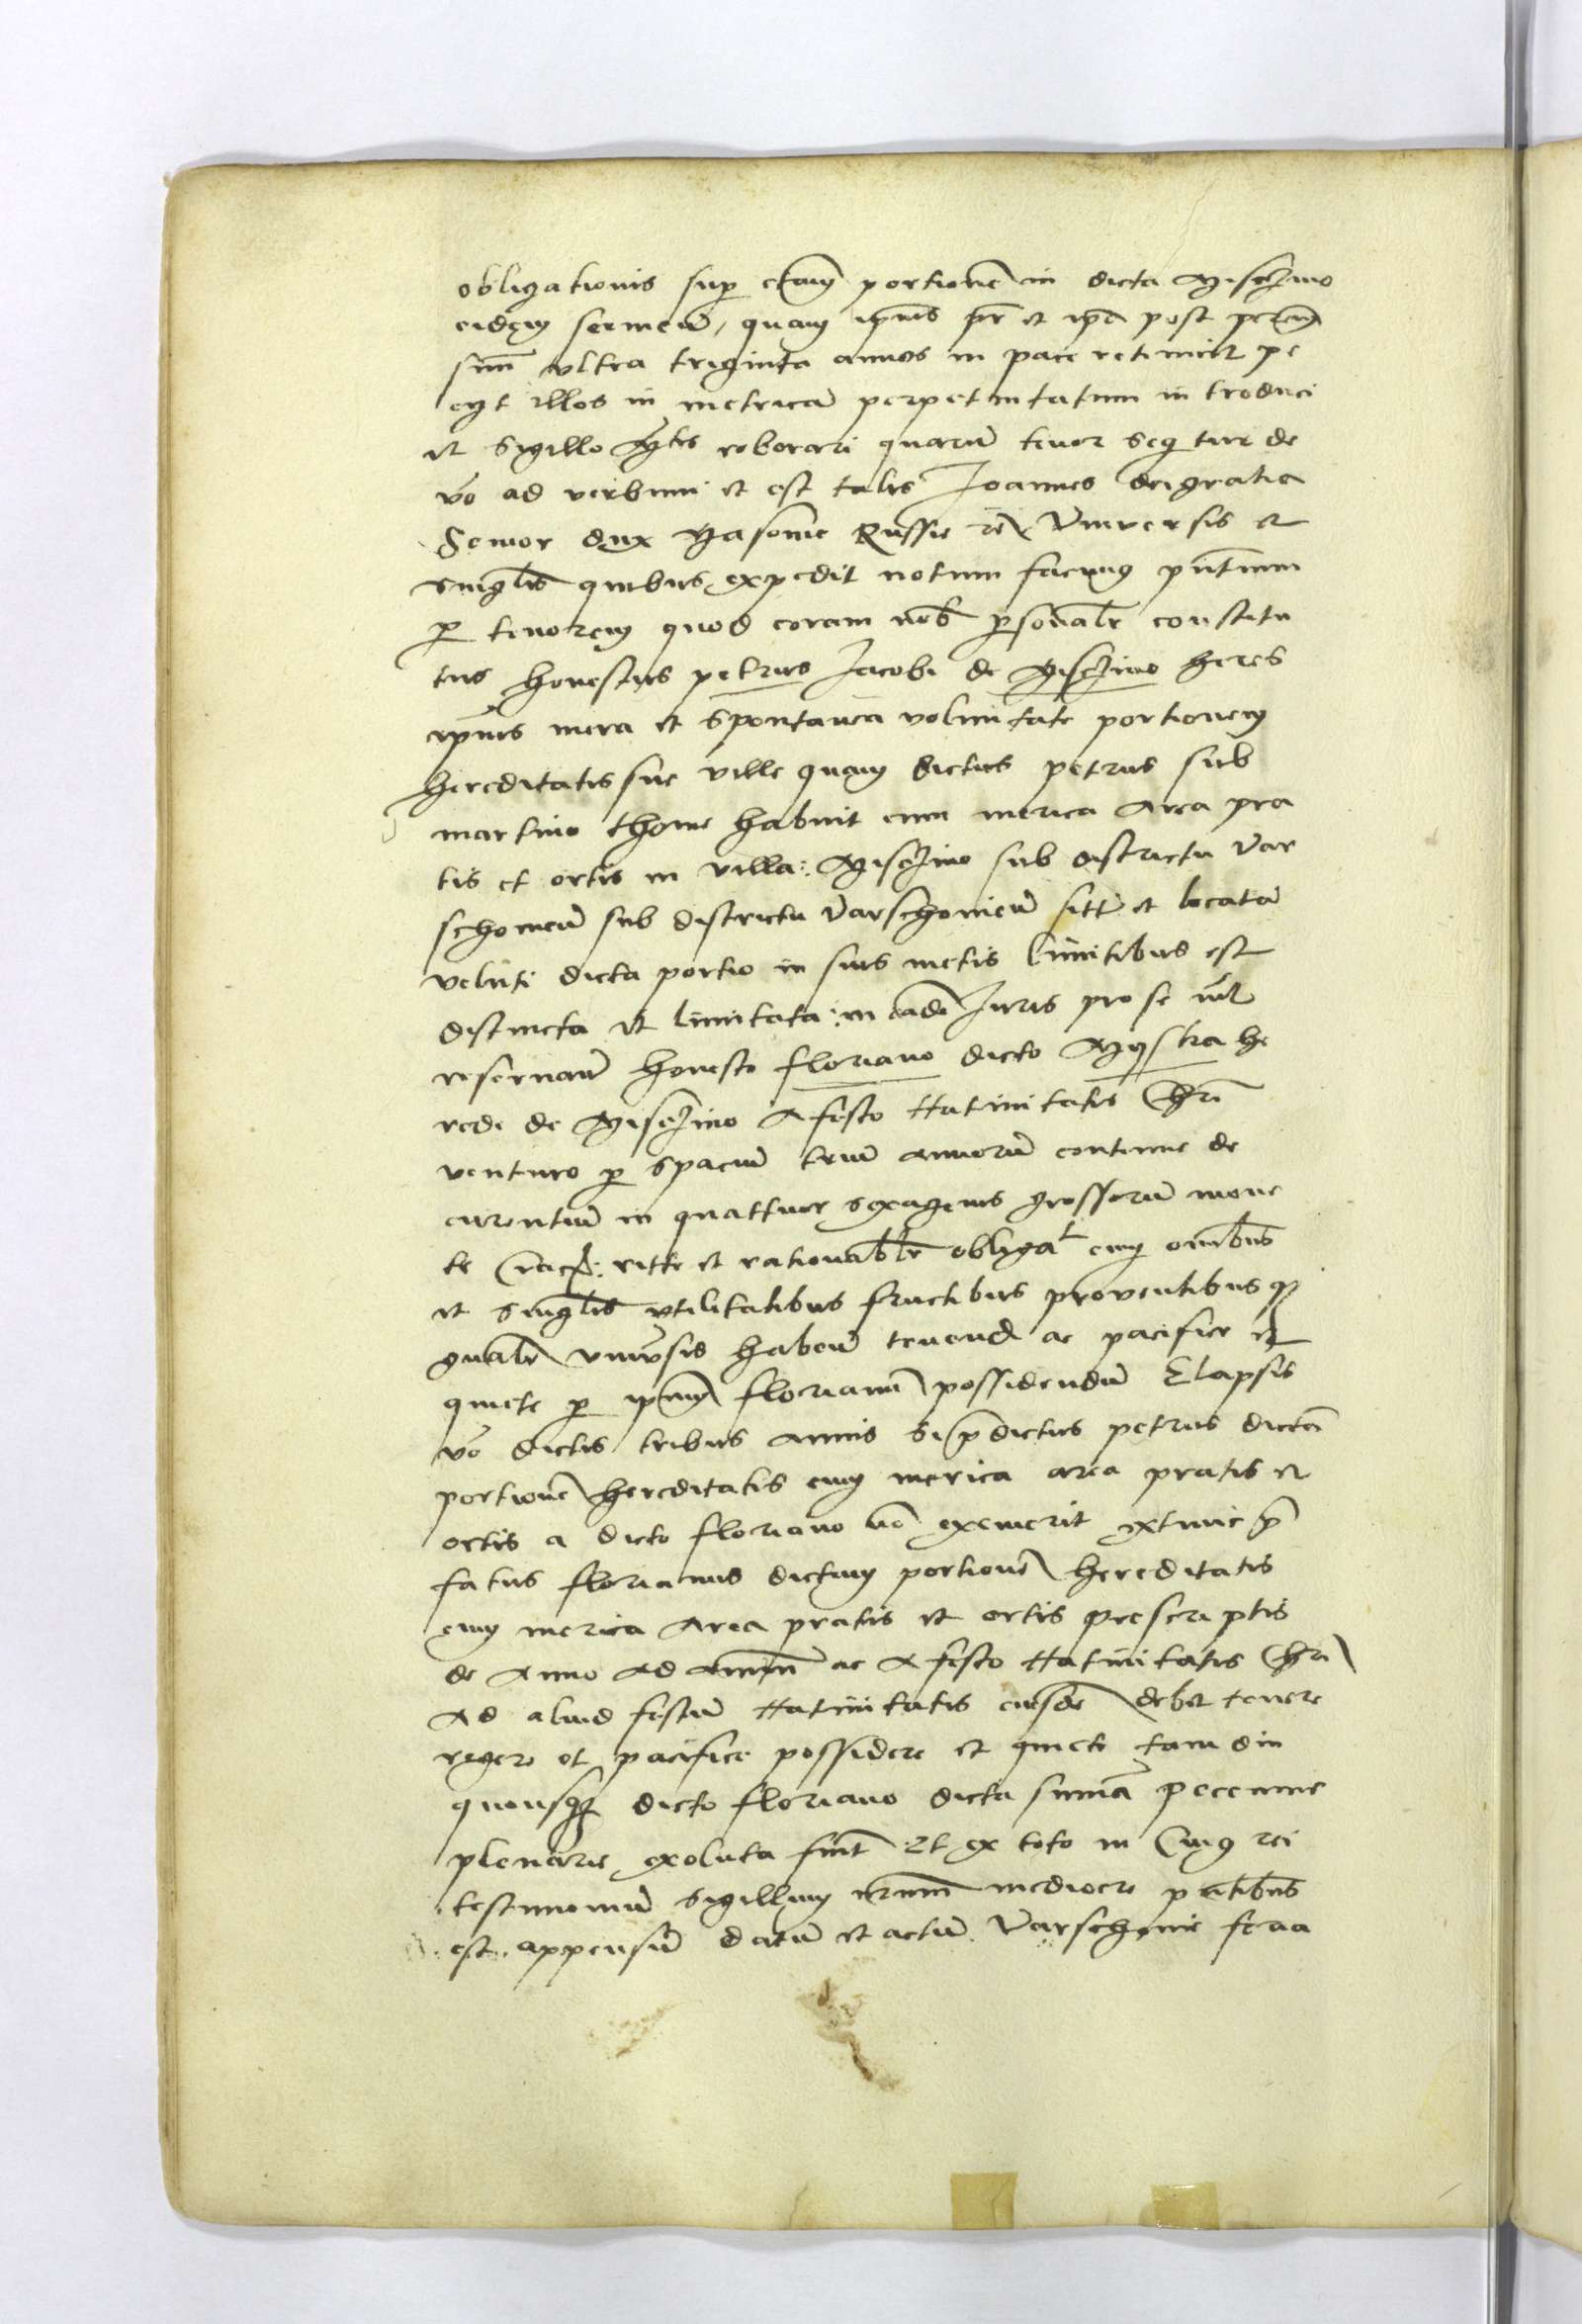 obligationis sup certam portionē in dicta Mischino
eidem servieñ, quam ipius pr̄ et ipā post patrem
suū ultra triginta annos in pace retinuit pe
cyt illos in metricā perpetuitatum introduci
et sigillo robarari quarū tenor seqitur de
vo ad verbum et est talis Joannes dei gratia
Senior dux Masovie Russie rc Universis et
singlis quibus expedit notum facimq pntium
p tenorem quod coram nob personalr constitu
tus honestus petrus Jacobi de Mischino heres
ipius mera et spontanea voluntate portionem
hereditatis sue ville quam dictus petrus sub
martino thome habuit cum merica Area pra
tis et ortis in villa: Mischino sub districtu Var
schovieñ sub districtu Varschovieñ sitt et locatā
veluti dicta portio in suis metis limitibus est
distincta et limitata: in eade Juris pro se nil
reservañ honesto floriano dicto he
rede de Mischino A festo Natiuitatis Chri
venturo p spaciū triū annorū continue de
curentiū in quattuor sexagenis grossorū mone
te ritte et rationablr obligat cum omibus
et singlis utilitatibus fructibus proventibus q
gnalr univsis habeñ tenend ac pacifice et
quiete p ipm florianū possidendū Elapsis
vo dictis tribus annis si pdictus petrus dictā
portionē hereditatis cum merica area pratis et
ortis a dicto floriano nō exemerit extunc p
fatus florianus dictam portionē hereditatis
cum merica Area pratis et ortis prescriptis
de Anno Ad annū ac A festo Natiuitatis Chri
Ad aliud festū Natiuitatis eiusdē debet tenere
regere et pacifice possidere et quiete tam diu
quousq dicto floriano dicta suma peccunie
plenarie exoluta fuit Et ex toto in Cuiq rei
testimoniū sigillum nrum mediocre pntibus
est appensū datū et actū Varschovie feria